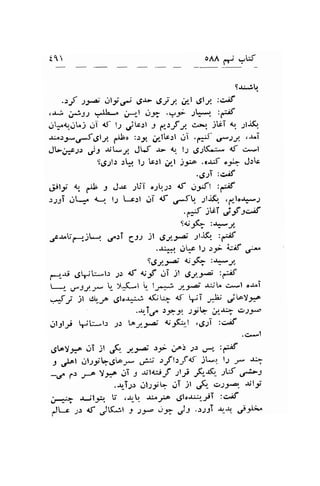 کتاب نهم ۵۸۸ ۴۹۱
باشند؟
گفت: برای این برتری حدی نمی‌توان تصور کرد.
گفتم: بسیار خوب. چون این مطلب روشن شد،
بگذار به آغاز بحث برگردیم و ادعائی را که آن زمان‌به‌میان
آمد، بررسی کنیم. آن ادعااین بود: «ظلم برای کسی‌سودمند
است که ستمکاری را به حد کمال برساند ولی درعین‌حال
عادل جلوه کند». هنوز این ادعا را بیاد داری؟
گفت: آری.
گفتم: اکنون که درباره آثار عدل و ظلم به توافق
رسیده‌ایم، بگذار باکسی که آن ادعا را به میان آورد
گفت‌وگوئی آغاز کنیم.
پرسید: چگونه؟
گفتم: بگذار تصویری از روح آدمی بسازیم‌تامدعی
معنی گفتهٔ خود را عیان ببیند.
پرسید: چگونه تصویری؟
گفتم: تصویری از آن گونه که در داستانهای قدیم
آمده است مانند تصویر شیمرا یا اسکیلا یا سربروس یا
هیولاهائی نظیر آنها که چنانکه شنیده‌ای هریک از ترکیب
صورت چندین جانور بوجود می‌آید.
گفت: آری، اینگونه تصویرها در داستانها فراوان
است.
گفتم: پس در ذهن خود تصویر یکی از آن هیولاهای
چند سر را بساز که‌گرداگرد تنش سرهای‌جانوران اهلی و
وحشی کنار یکدیگر قرار گرفته‌اند و آن هیولا هر دم می‌
تواند بصورت یکی از آن جانوران درآید.
گفت: آفریننده‌ای هنرمند باید، تا بتواند چنین
مخلوقی پدید آورد. ولی چون صور و اشکالی که در عالم